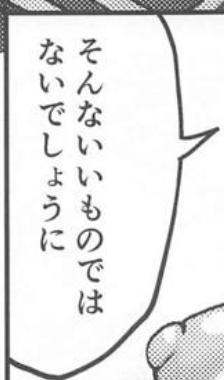 そんないいものでは
ないでしょうに